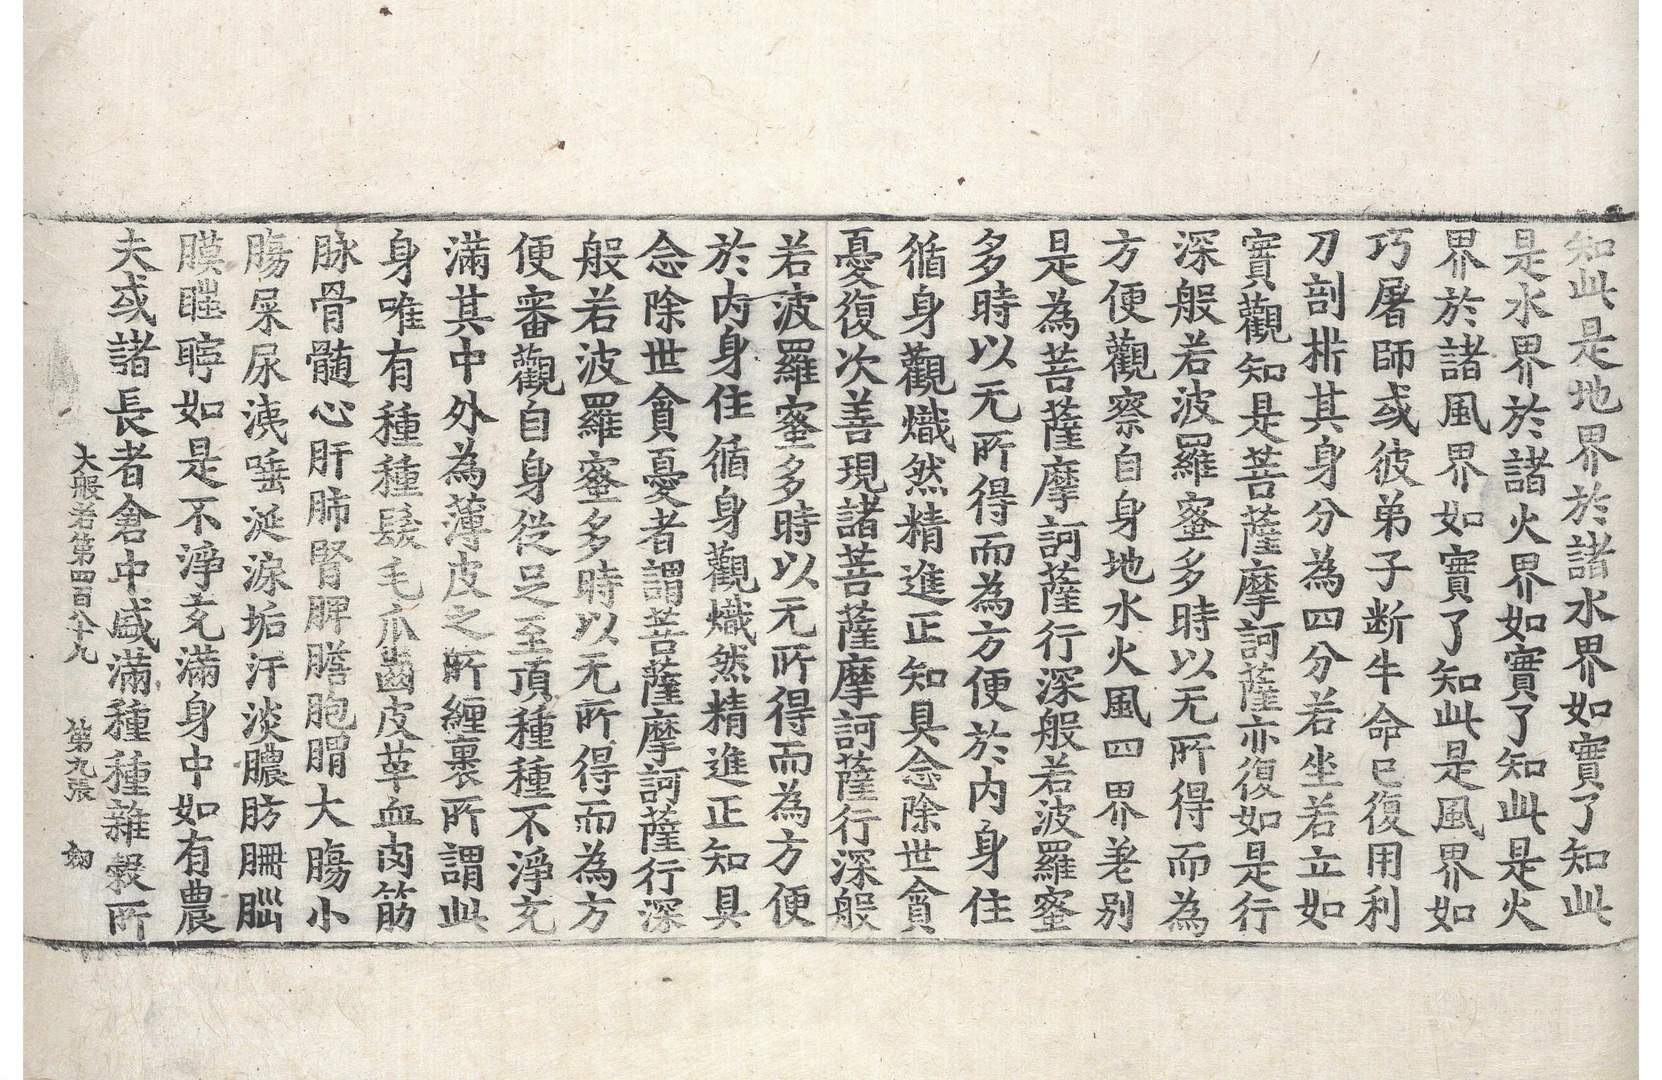 知此是地界於諸水界如實了知此
是水界於諸火界如實了知此是火
界於諸風界如實了知此是風界如
巧屠師或彼弟子断牛命已復用利
刀剖㭊其身分為四分若坐若立如
實觀知是菩薩摩訶薩亦復如是行
深般若波羅蜜多時以无所得而為
方便觀察自身地水火風四界差別
是為菩薩摩訶薩行深般若波羅蜜
多時以无所得而為方便於内身住
循身觀熾然精進正知具念除世貪
憂復次善現諸菩薩摩訶薩行深般
若波羅蜜多時以无所得而為方便
於内身住循身觀熾然精進正知具
念除世貪憂者謂菩薩摩訶薩行深
般若波羅蜜多時以无所得而為方
便審觀自身從足至頂種種不淨充
滿其中外為薄皮之所纏裹所謂此
身唯有種種髮毛爪齒皮革血肉筋
脉骨髓心肝肺腎脾膽胞胃大膓小
膓屎尿洟唾涎淚垢汗淡膿肪𦙱𦛁
膜聹如是不淨充滿身中如有農
夫或諸長者倉中盛滿種種雜穀所
大般若第四百八十九 第九張 翔